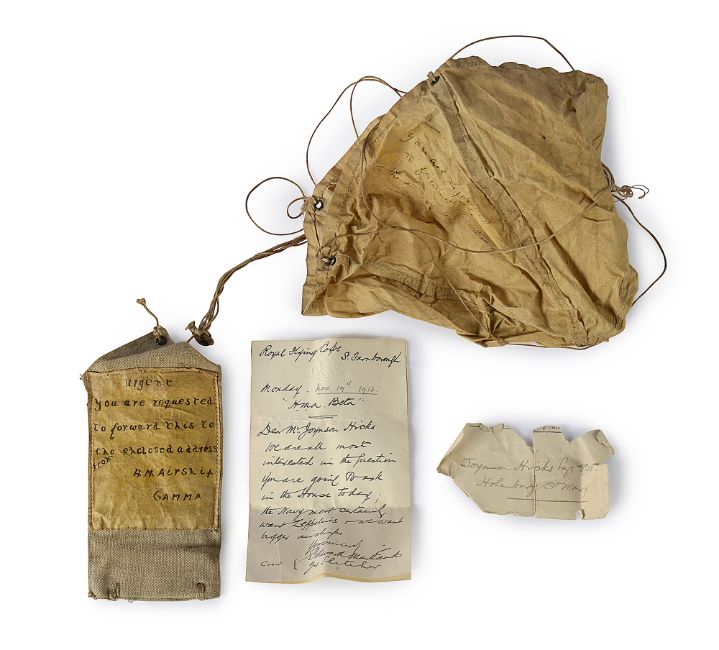 you are
to
Urgent
You are requested
to forward this to
the enclosed address
from
H.M. Airship
GAMMA
Royal Flying Corps
S. Farnborough
Monday. Nov. 19th 1912.
"Hma. Beta"
Dear Mr Joynson Hicks
We are all most
interested in the question
you are going to ask
in the House today;
the Navy most certainly
want Zeppelins & we want
bigger airships
Edward Maitland
Crew { Fletcher
Joynson Hicks Esqr
Holmbury St Mary